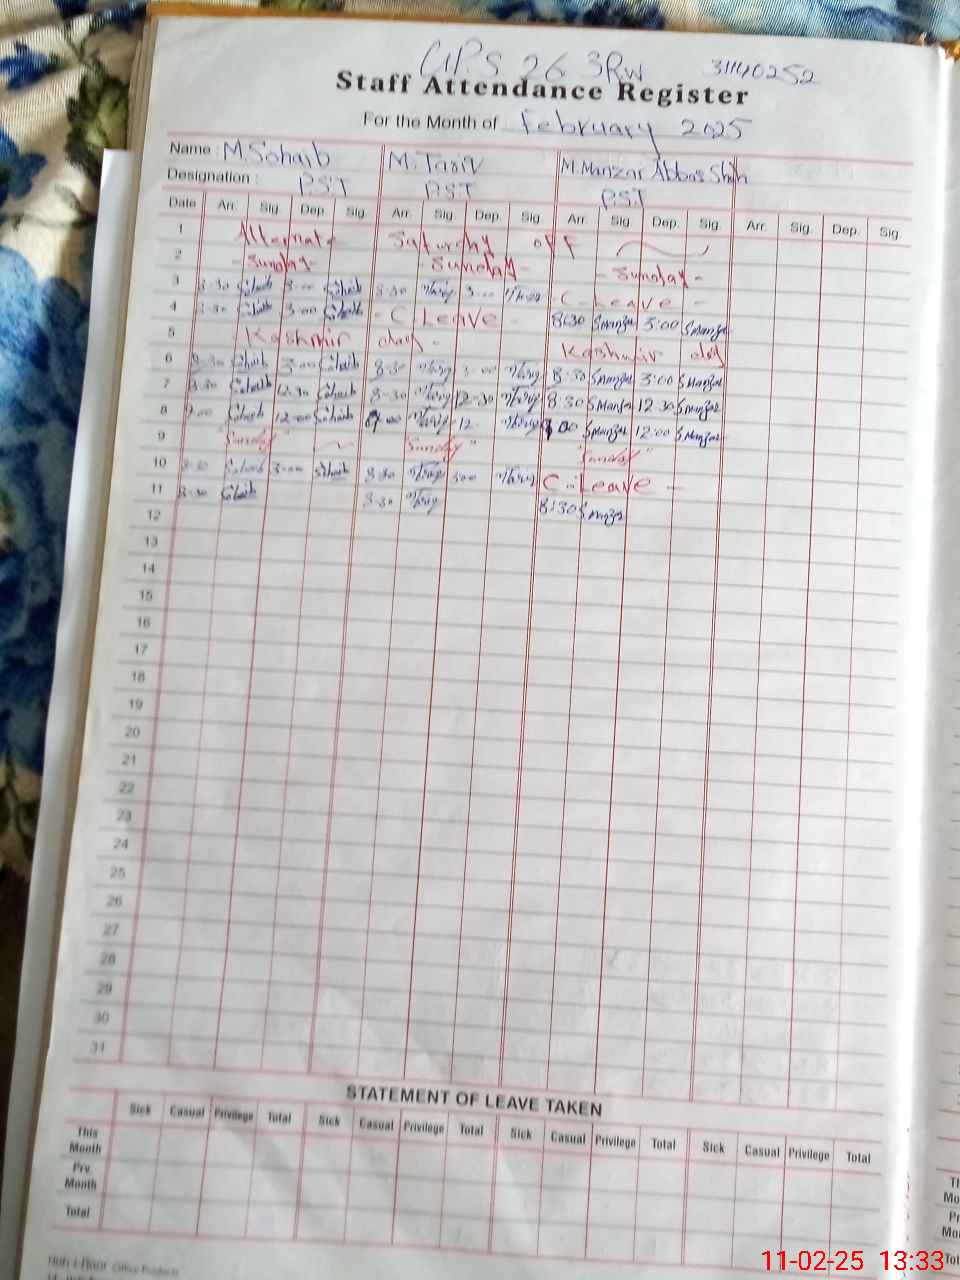 GPS 26 3RW 31140252
Staff Attendance Register
For the Month of February 2025
Name : M.Sohaib M. Tariq M. Manzar Abbas Shah
Designation : PST PST PST
Date Arr. Sig. Dep. Sig. Arr. Sig. Dep. Sig. Arr. Sig. Dep. Sig. Arr. Sig. Dep. Sig.
1 Alternate Saturday off
2 - Sunday - - Sunday - - Sunday -
3 8:30 Sohaib 3:00 Sohaib 8:30 Tariq 3:00 Tariq - C - Leave -
4 8:30 Sohaib 3:00 Sohaib - C Leave - 8:30 Smanzar 3:00 Smanzar
5 Kashmir day - Kashmir day
6 8:30 Sohaib 3:00 Sohaib 8:30 Tariq 3:00 Tariq 8:30 Smanzar 3:00 Smanzar
7 8:30 Sohaib 12:30 Sohaib 8:30 Tariq 12:30 Tariq 8:30 Smanzar 12:30 Smanzar
8 9:00 Sohaib 12:00 Sohaib 9:00 Tariq 12 Tariq 9:00 Smanzar 12:00 Smanzar
9 "Sunday" "Sunday" "Sunday"
10 8:30 Sohaib 3:00 Sohaib 8:30 Tariq 3:00 Tariq C - Leave -
11 8:30 Sohaib 8:30 Tariq 8:30 Smanzar
12
13
14
15
16
17
18
19
20
21
22
23
24
25
26
27
28
29
30
31
STATEMENT OF LEAVE TAKEN
Sick Casual Privilege Total Sick Casual Privilege Total Sick Casual Privilege Total Sick Casual Privilege Total
This Month
Prv. Month
Total
Office Products
11-02-25 13:33